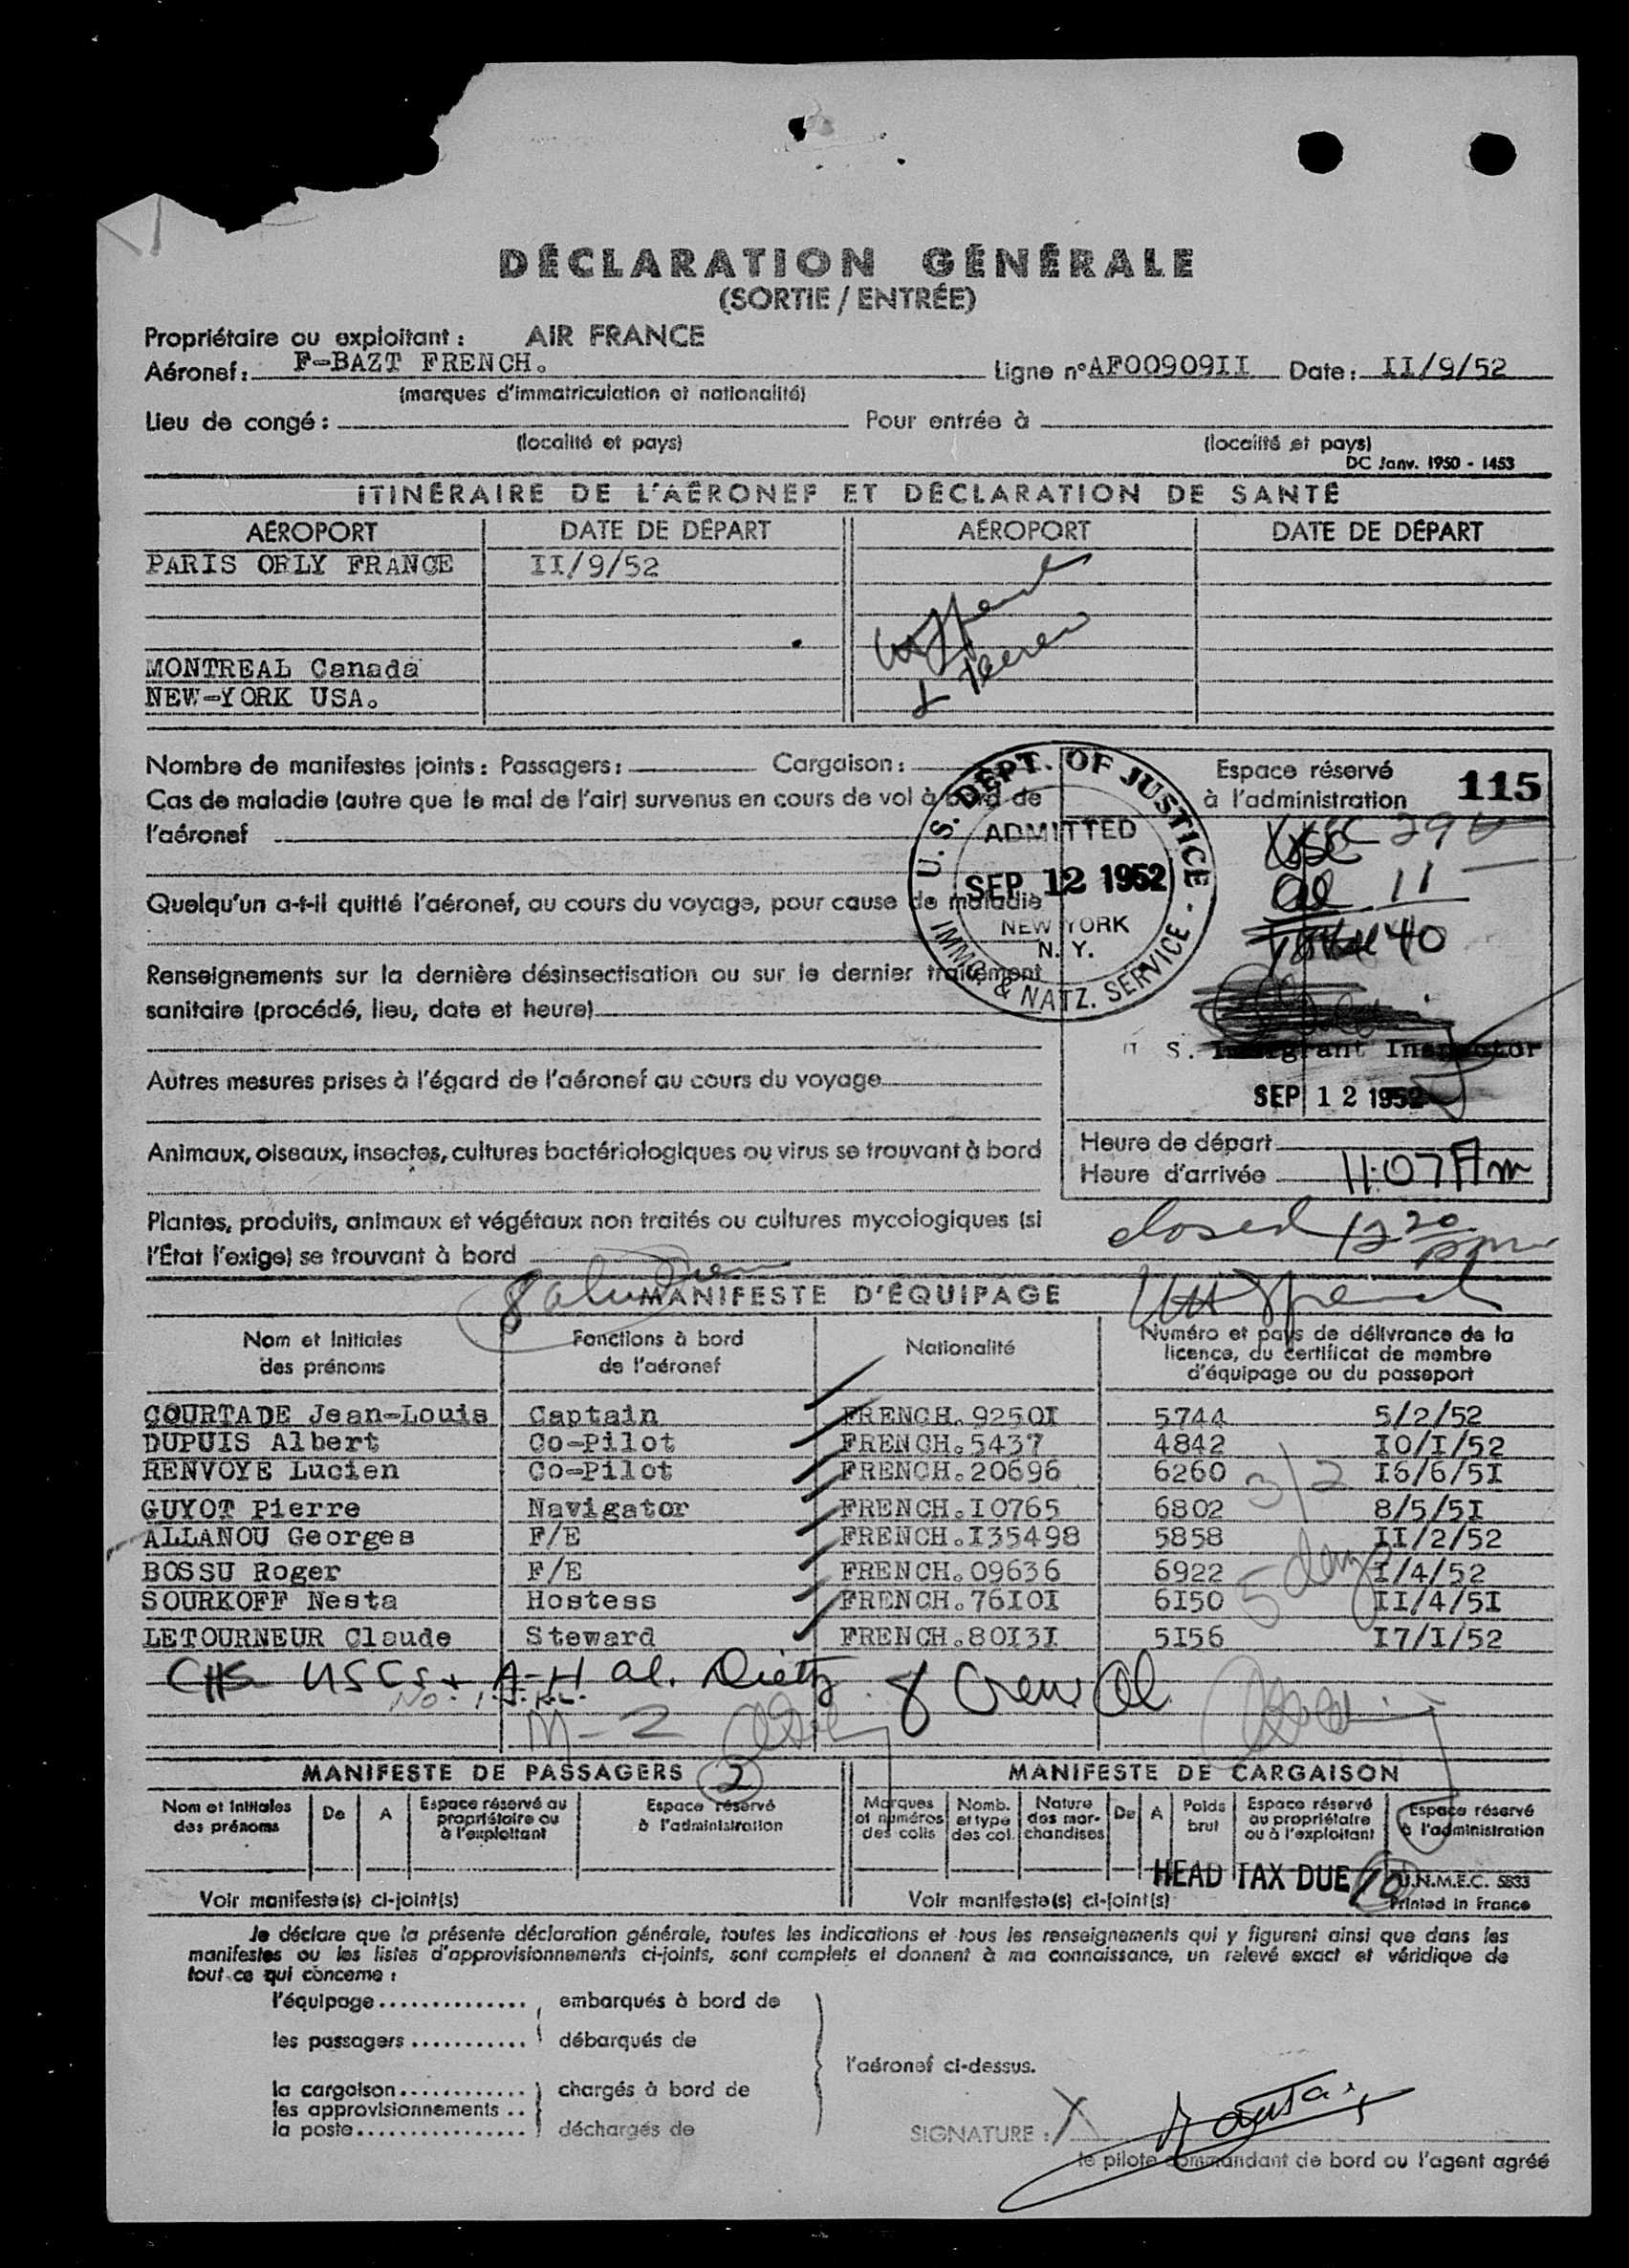 DÉCLARATION GÉNÉRALE
(SORTIE / ENTRÉE)
Propriétaire ou exploitant : AIR FRANCE
Aéronef : F-BAZT FRENCH. Ligne n° AF00909II Date : II/9/52
(marques d'immatriculation et nationalité)
Lieu de congé : Pour entrée à
(localité et pays) (localité et pays)
DC Janv. 1950 - 1453
ITINÉRAIRE DE L'AÉRONEF ET DÉCLARATION DE SANTÉ
AÉROPORT DATE DE DÉPART AÉROPORT DATE DE DÉPART
PARIS ORLY FRANCE II/9/52
MONTREAL Canada
NEW-YORK USA.
Nombre de manifestes joints : Passagers : Cargaison :
Cas de maladie (autre que le mal de l'air) survenus en cours de vol à bord de
l'aéronef
Quelqu'un a-t-il quitté l'aéronef, au cours du voyage, pour cause de maladie
Renseignements sur la dernière désinsectisation ou sur le dernier traitement
sanitaire (procédé, lieu, date et heure)
Autres mesures prises à l'égard de l'aéronef au cours du voyage
Animaux, oiseaux, insectes, cultures bactériologiques ou virus se trouvant à bord
Plantes, produits, animaux et végétaux non traités ou cultures mycologiques (si
l'État l'exige) se trouvant à bord
U. S. DEPT. OF JUSTICE -
ADMITTED
SEP 12 1952
NEW YORK
N. Y.
IMMG. & NATZ. SERVICE -
Espace réservé
à l'administration 115
USC 29
al 11
Total 40
U. S. Immigrant Inspector
SEP 12 1952
Heure de départ
Heure d'arrivée 11:07 Am
closed 12 20 pm
MANIFESTE D'ÉQUIPAGE
Nom et Initiales des prénoms
Fonctions à bord de l'aéronef
Nationalité
Numéro et pays de délivrance de la licence, du certificat de membre d'équipage ou du passeport
COURTADE Jean-Louis Captain FRENCH. 9250I 5744 5/2/52
DUPUIS Albert Co-Pilot FRENCH. 5437 4842 I0/I/52
RENVOYE Lucien Co-Pilot FRENCH. 20696 6260 I6/6/5I
GUYOT Pierre Navigator FRENCH. I0765 6802 8/5/5I
ALLANOU Georges F/E FRENCH. I35498 5858 II/2/52
BOSSU Roger F/E FRENCH. 09636 6922 I/4/52
SOURKOFF Nesta Hostess FRENCH. 76I0I 6I50 II/4/5I
LETOURNEUR Claude Steward FRENCH. 80I3I 5I56 I7/I/52
5 days
USCs + A-H al. 8 Crew al
M-2
MANIFESTE DE PASSAGERS 2 MANIFESTE DE CARGAISON
Nom et Initiales des prénoms
De
A
Espace réservé au propriétaire ou à l'exploitant
Espace réservé à l'administration
Marques et numéros des colis
Nomb. et type des col.
Nature des marchandises
De
A
Poids brut
Espace réservé au propriétaire ou à l'exploitant
Espace réservé à l'administration
HEAD TAX DUE 10
U.N.M.E.C. 5833
Voir manifeste(s) ci-joint(s) Voir manifeste(s) ci-joint(s) Printed in France
Je déclare que la présente déclaration générale, toutes les indications et tous les renseignements qui y figurent ainsi que dans les
manifestes ou les listes d'approvisionnements ci-joints, sont complets et donnent à ma connaissance, un relevé exact et véridique de
tout ce qui concerne :
l'équipage.............. embarqués à bord de
les passagers ............ débarqués de
l'aéronef ci-dessus.
la cargaison............. chargés à bord de
les approvisionnements ..
la poste................. déchargés de
SIGNATURE : X
le pilote commandant de bord ou l'agent agréé